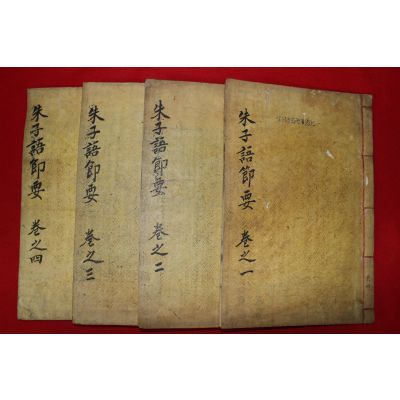 朱子語節要 卷之一
朱子語節要 卷之二
朱子語節要 卷之三
朱子語節要 卷之四